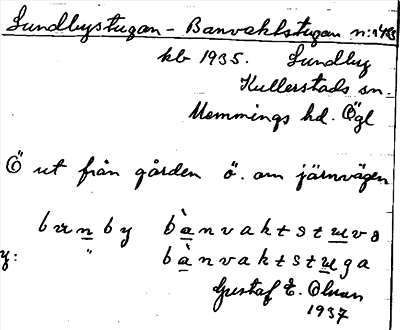 Lundbystugan - Banvaktstugan n:r
kb 1935. Lundby
Kullerstads sn.
Memmings hd. Ögl
Ö ut från gården ö. om järnvägen
by bànvaktstuvo
y: " bànvaktstuga
Gustaf E. Olson
1937